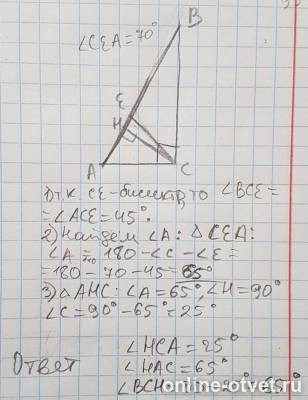 ∠CEA=70°
B
E
H
A
C
1) т.к CE-биссектр, то ∠BCE=
=∠ACE=45°.
2) Найдём ∠A: △CEA:
∠A = 180-∠C-∠E=
=180-70-45=65°
3) △AHC: ∠A=65°, ∠H=90°
∠C=90°-65°=25°
Ответ
∠HCA=25°
∠HAC=65°
∠BCH
online-otvet.ru